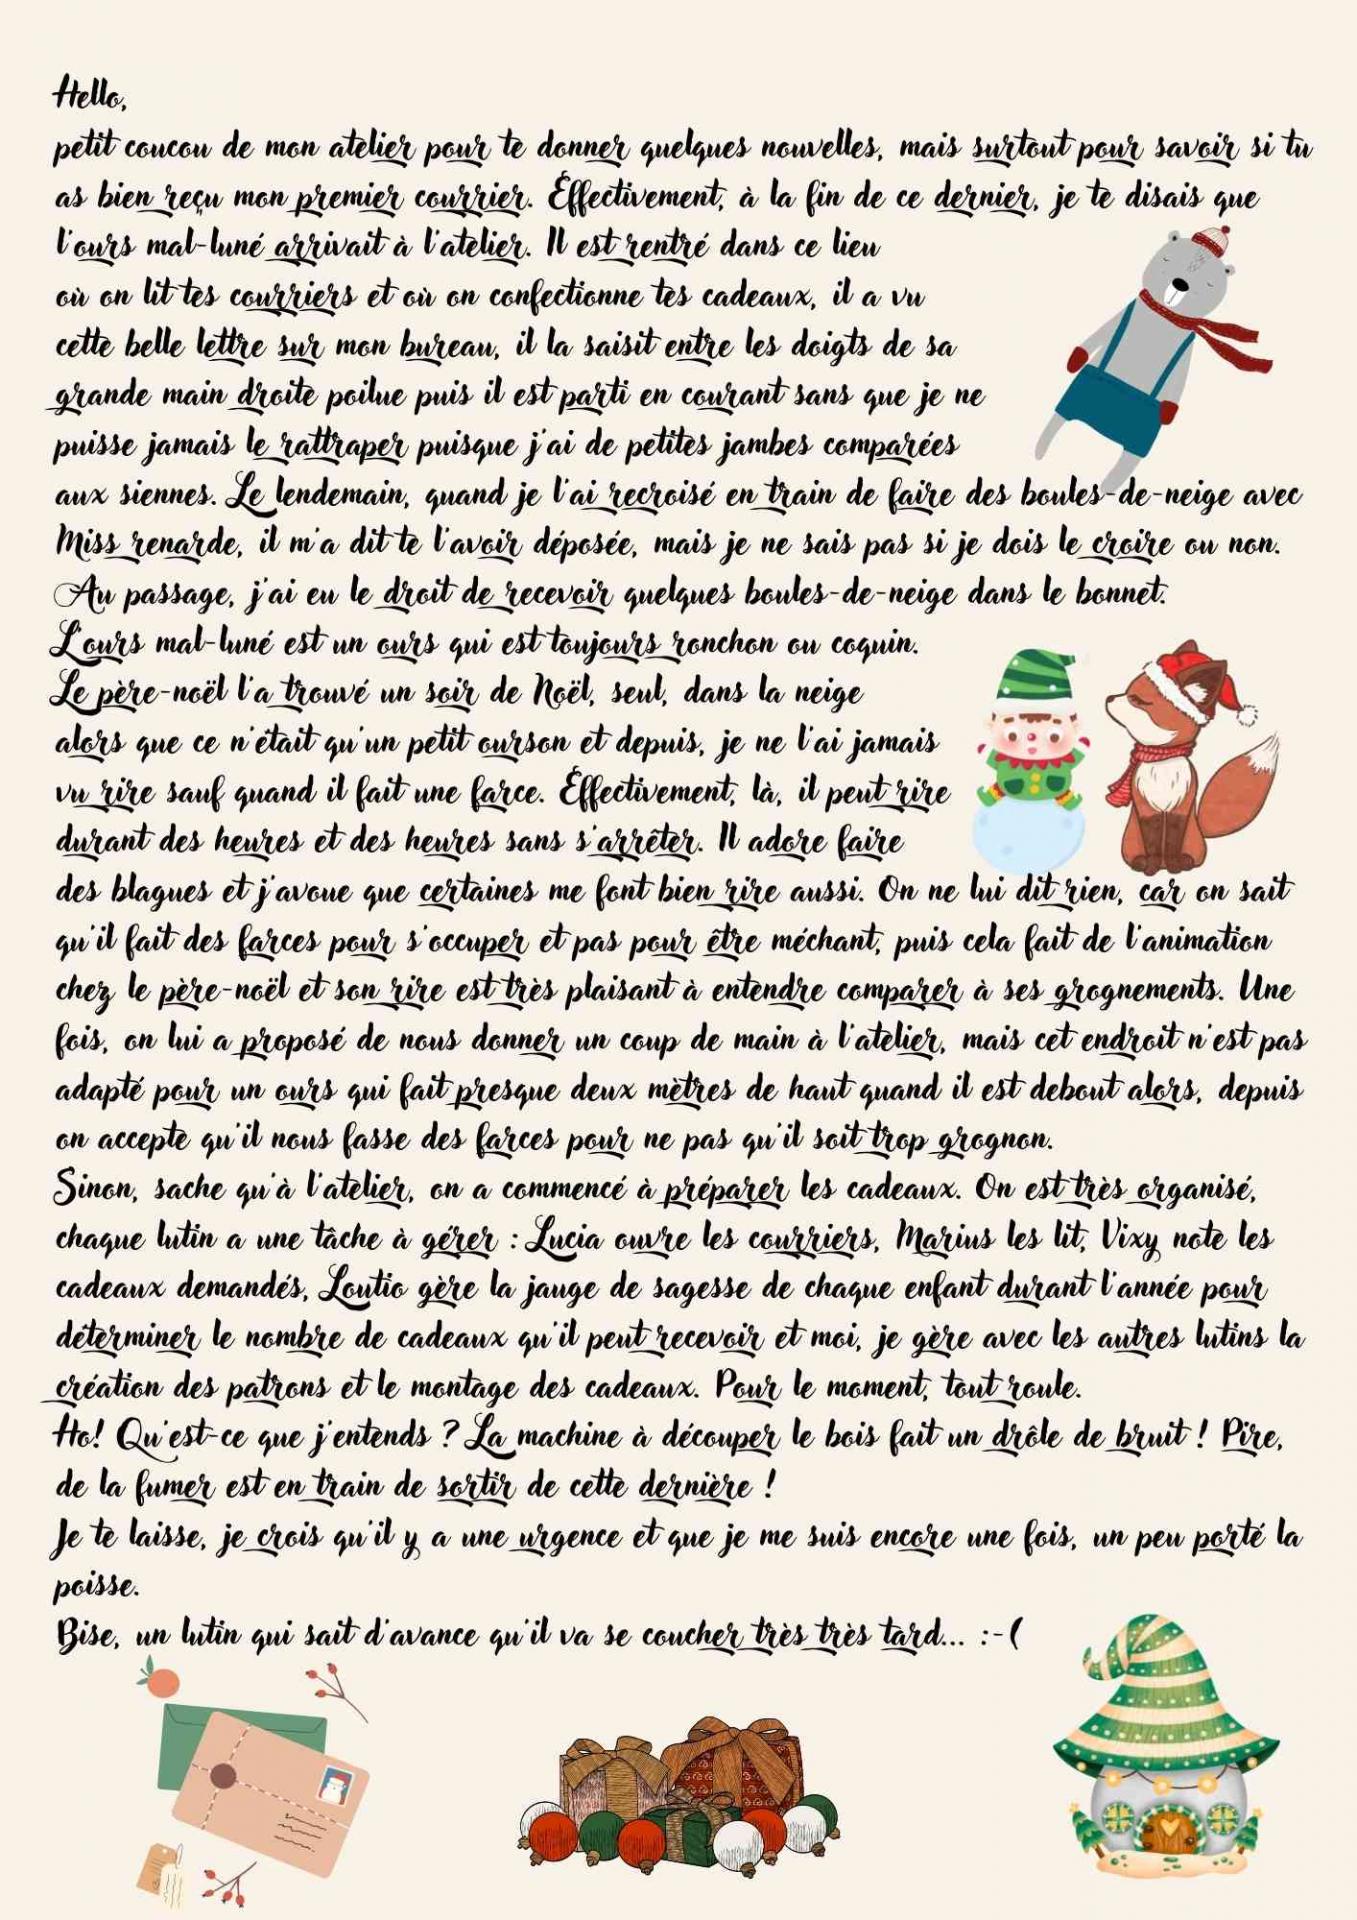 Hello,
petit coucou de mon atelier pour te donner quelques nouvelles, mais surtout pour savoir si tu
as bien reçu mon premier courrier. Effectivement, à la fin de ce dernier, je te disais que
l'ours mal-luné arrivait à l'atelier. Il est rentré dans ce lieu
où on lit tes courriers et où on confectionne tes cadeaux, il a vu
cette belle lettre sur mon bureau, il la saisit entre les doigts de sa
grande main droite poilue puis il est parti en courant sans que je ne
puisse jamais le rattraper puisque j'ai de petites jambes comparées
aux siennes. Le lendemain, quand je l'ai recroisé en train de faire des boules-de-neige avec
Miss renarde, il m'a dit te l'avoir déposée, mais je ne sais pas si je dois le croire ou non.
Au passage, j'ai eu le droit de recevoir quelques boules-de-neige dans le bonnet.
L'ours mal-luné est un ours qui est toujours ronchon ou coquin.
Le père-noël l'a trouvé un soir de Noël, seul, dans la neige
alors que ce n'était qu'un petit ourson et depuis, je ne l'ai jamais
vu rire sauf quand il fait une farce. Effectivement, là, il peut rire
durant des heures et des heures sans s'arrêter. Il adore faire
des blagues et j'avoue que certaines me font bien rire aussi. On ne lui dit rien, car on sait
qu'il fait des farces pour s'occuper et pas pour être méchant, puis cela fait de l'animation
chez le père-noël et son rire est très plaisant à entendre comparer à ses grognements. Une
fois, on lui a proposé de nous donner un coup de main à l'atelier, mais cet endroit n'est pas
adapté pour un ours qui fait presque deux mètres de haut quand il est debout alors, depuis
on accepte qu'il nous fasse des farces pour ne pas qu'il soit trop grognon.
Sinon, sache qu'à l'atelier, on a commencé à préparer les cadeaux. On est très organisé,
chaque lutin a une tâche à gérer : Lucia ouvre les courriers, Marius les lit, Vixy note les
cadeaux demandés, Loutio gère la jauge de sagesse de chaque enfant durant l'année pour
déterminer le nombre de cadeaux qu'il peut recevoir et moi, je gère avec les autres lutins la
création des patrons et le montage des cadeaux. Pour le moment, tout roule.
Ho! Qu'est-ce que j'entends ? La machine à découper le bois fait un drôle de bruit ! Pire,
de la fumer est en train de sortir de cette dernière !
Je te laisse, je crois qu'il y a une urgence et que je me suis encore une fois, un peu porté la
poisse.
Bise, un lutin qui sait d'avance qu'il va se coucher très très tard... :-(